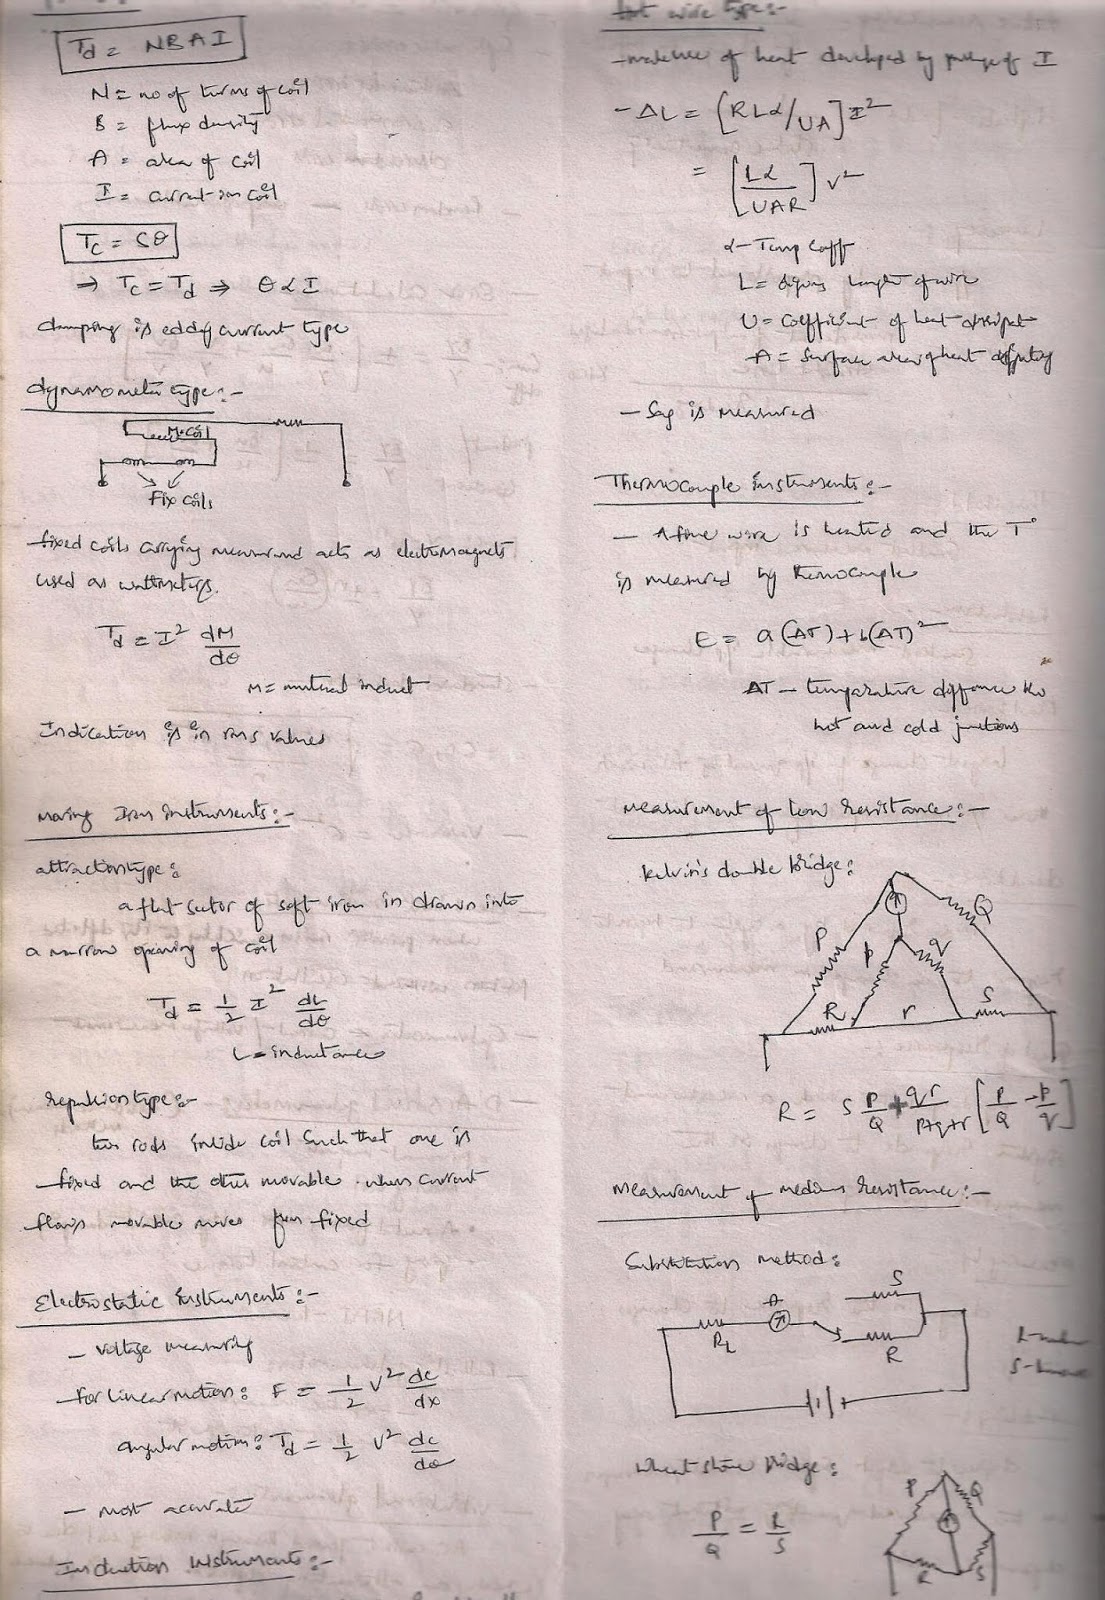 Td = NBAI
N = no of turns of coil
B = flux density
A = area of coil
I = current in coil
Tc = Sθ
⇒ Tc = Td ⇒ θ α I
damping is eddy current type
dynamometer type:-
M.coil
Fix coils
fixed coils carrying measurand acts as electromagnets
used as wattmeters.
Td = I² dM/dθ
M = mutual induct
Indication is in rms values
Moving Iron instruments:-
attraction type:
a flat sector of soft iron in drawn into
a narrow opening of coil
Td = 1/2 I² dL/dθ
L = inductance
repulsion type:-
two rods inside coil such that one is
fixed and the other movable. when current
flows movable moves from fixed
Electrostatic instruments:-
- voltage measuring
for linear motion: F = 1/2 V² dc/dx
angular motion: Td = 1/2 V² dc/dθ
- most accurate
Induction Instruments:-
Hot wire type:-
of heat developed by of I
- ΔL = [RLα/UA] I²
= [Lα/UAR] V²
α - Temp coeff
L = length of wire
U = coefficient of heat dissipat
A = Surface area of heat
- Sag is measured
Thermocouple instruments:-
- A fine wire is heated and the T°
is measured by thermocouple
E = a(ΔT) + b(ΔT)²
ΔT - temparature diffance
hot and cold junctions
Measurement of low resistance:-
Kelvin's double bridge:
P Q
p q
R r S
R = S P/Q + qr/p+q+r [P/Q - p/q]
Measurement of medium resistance:-
Substitution method:
S
A
RL
R
Wheat stone bridge:
P Q
P/Q = R/S
R S